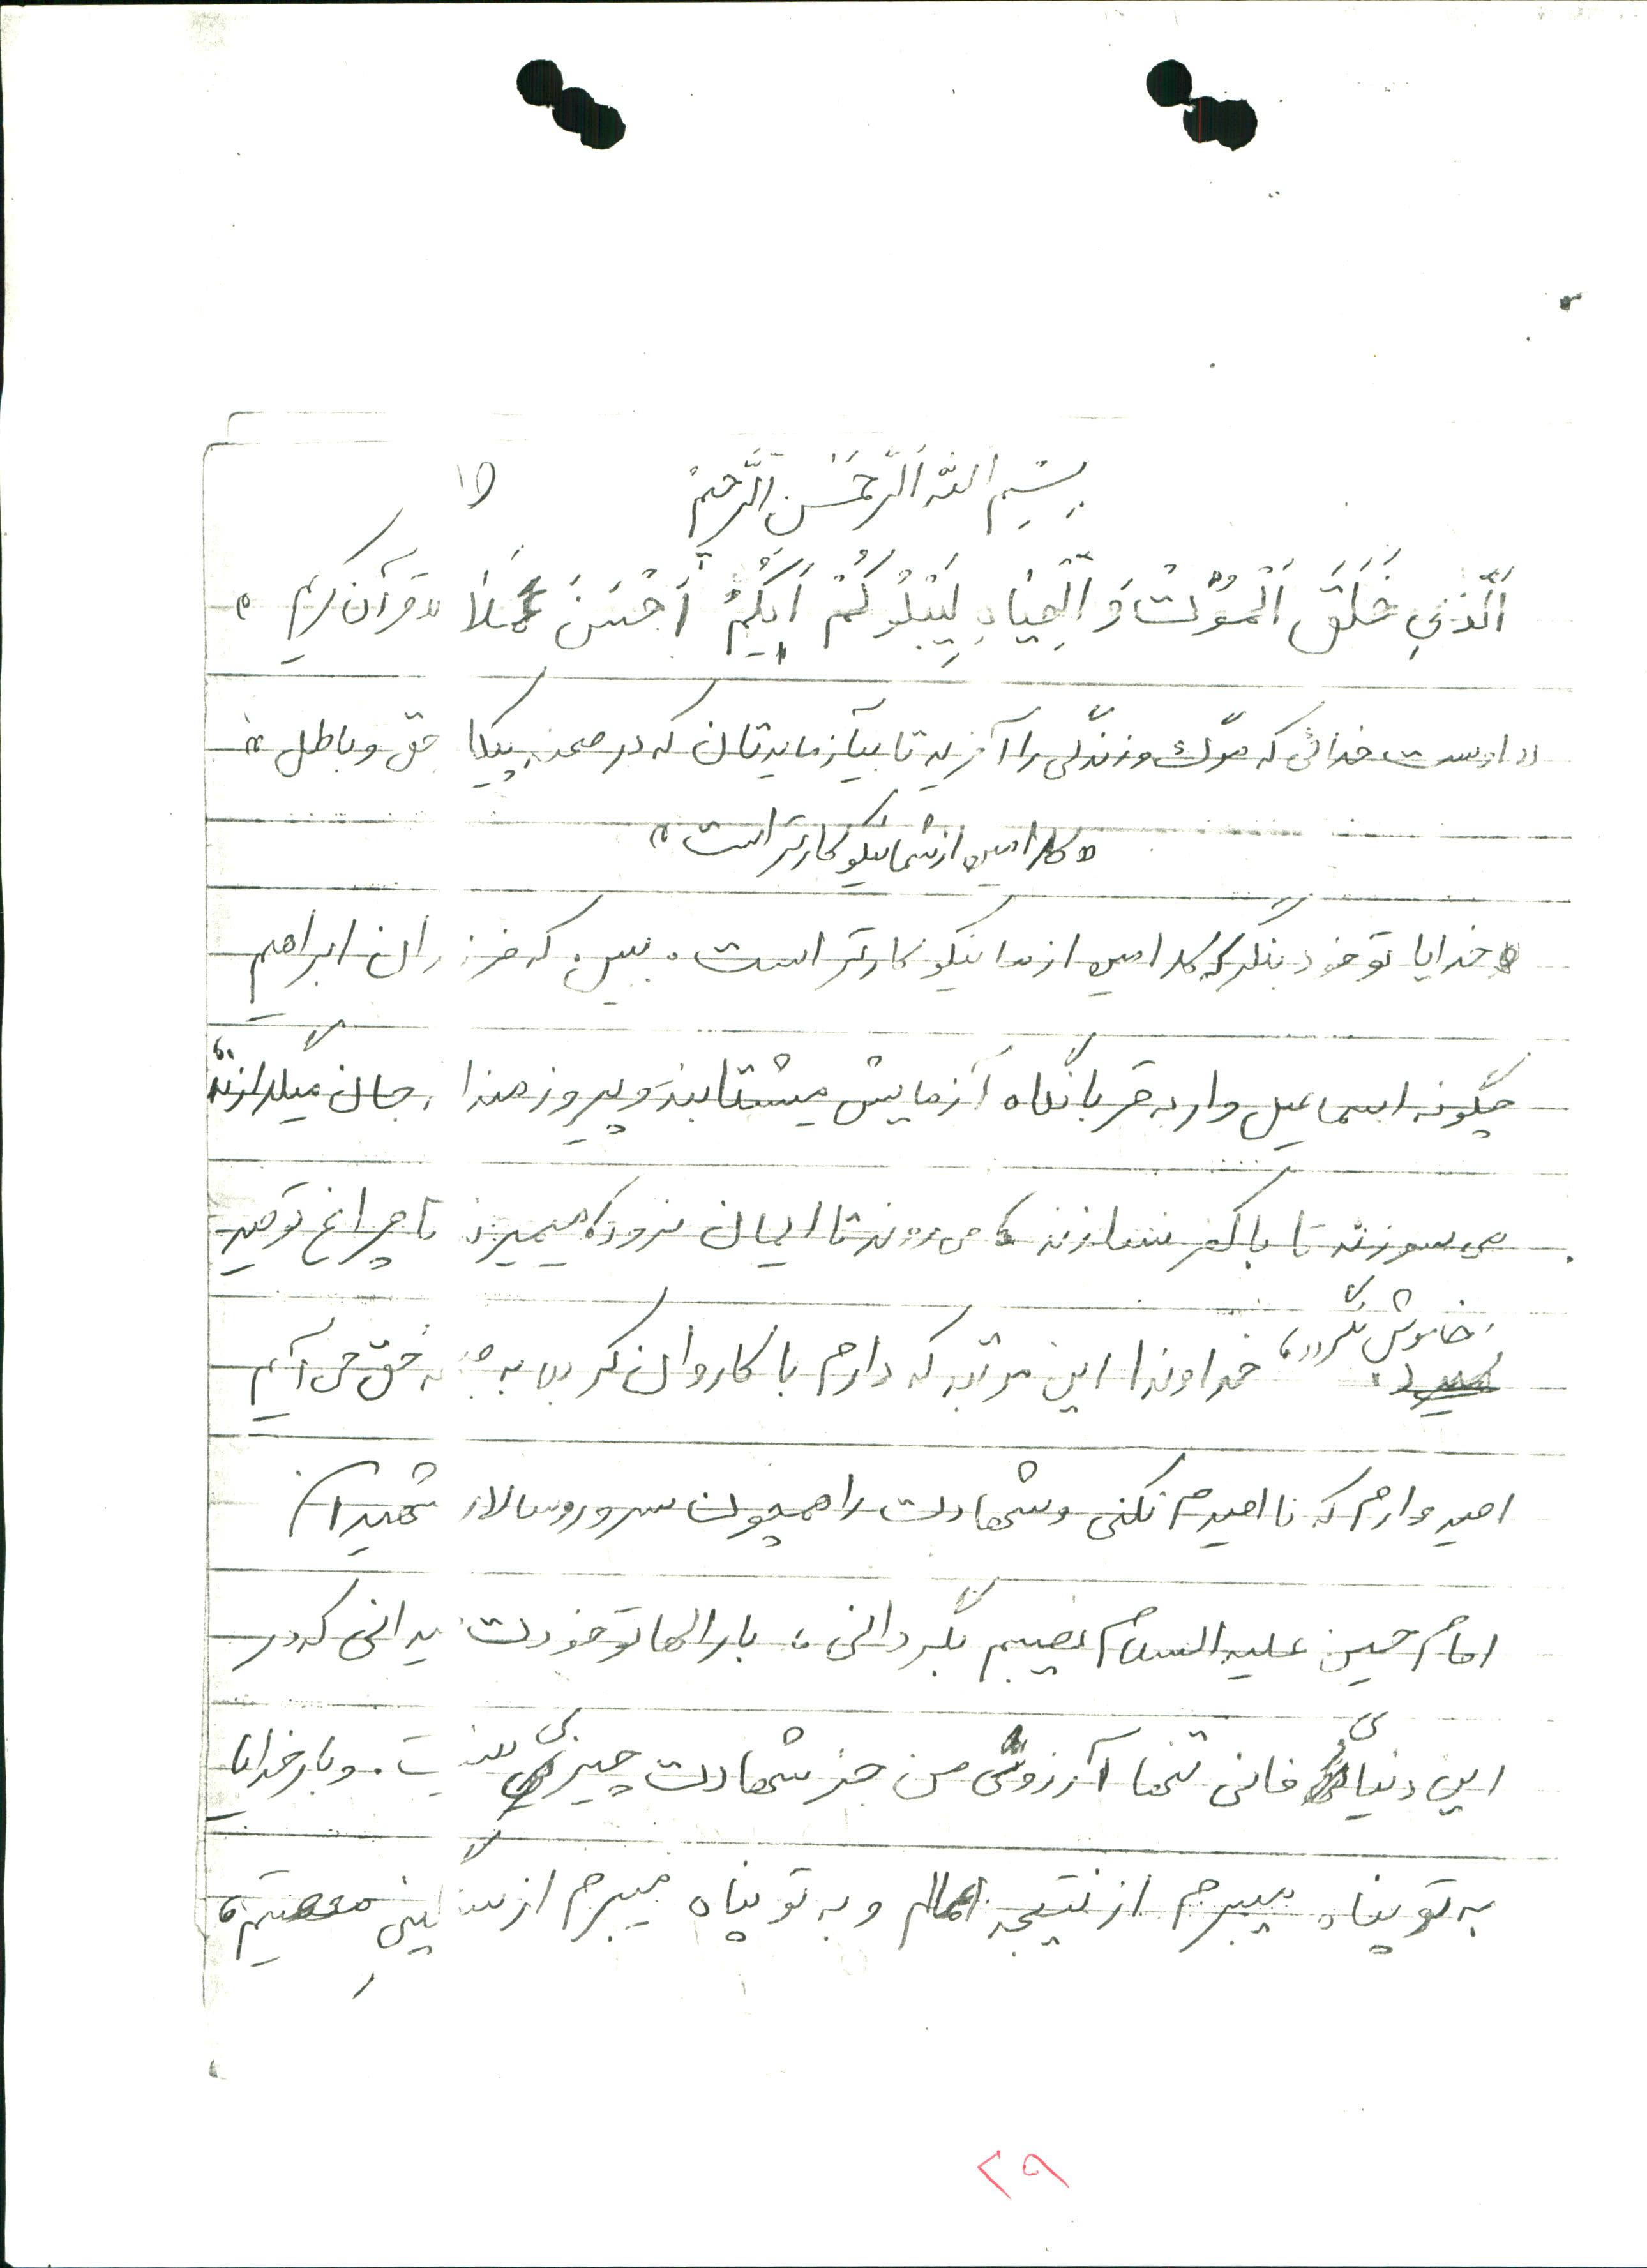 بِسْمِ اللَّهِ اَلرَّحْمَنِ اَلرَّحیمْ (۱
اَلَّذِي خَلَقَ اَلْمَوْتَ وَ اَلْحِیٰاهِ لِیَبْلُوَکُمْ اَیُّکُمْ اَحْسَنَ عَمَلاً «قرآن کریم»
«اوست خدائی که مرگ و زندگی را آفرید تا بیآزمایدتان که در صحنه پیکا حق و باطل»
«کدامین از شما نیکوکارتر است»
خدایا تو خود بنگر که کدامین از ما نیکوکارتر است. ببین که فرز ران ابراهیم
چگونه اسماعیل وار به قربانگاه آزمایش میشتابند و پیروزمندا جان میگدازند
می سوزند تا با کفر نسازند می روند تا ایمان نرود میمیرند تا چراغ توحید
خاموش نگردد، خداوندا این مرتبه که دارم با کاروان کربلا به حق می آیم
امیدوارم که ناامیدم نکنی و شهادت را همچون سرور و سالار شهیدان
امام حسین علیه السلام نصیبم بگردانی، بارالها تو خودت یدانی که در
این دنیای فانی تنها آرزوی من جز شهادت چیزی نیست. و بار خدایا
به تو پناه میبرم از نتیجه اعمالم و به تو پناه میبرم از سنگینی معصیتم،
۲۹